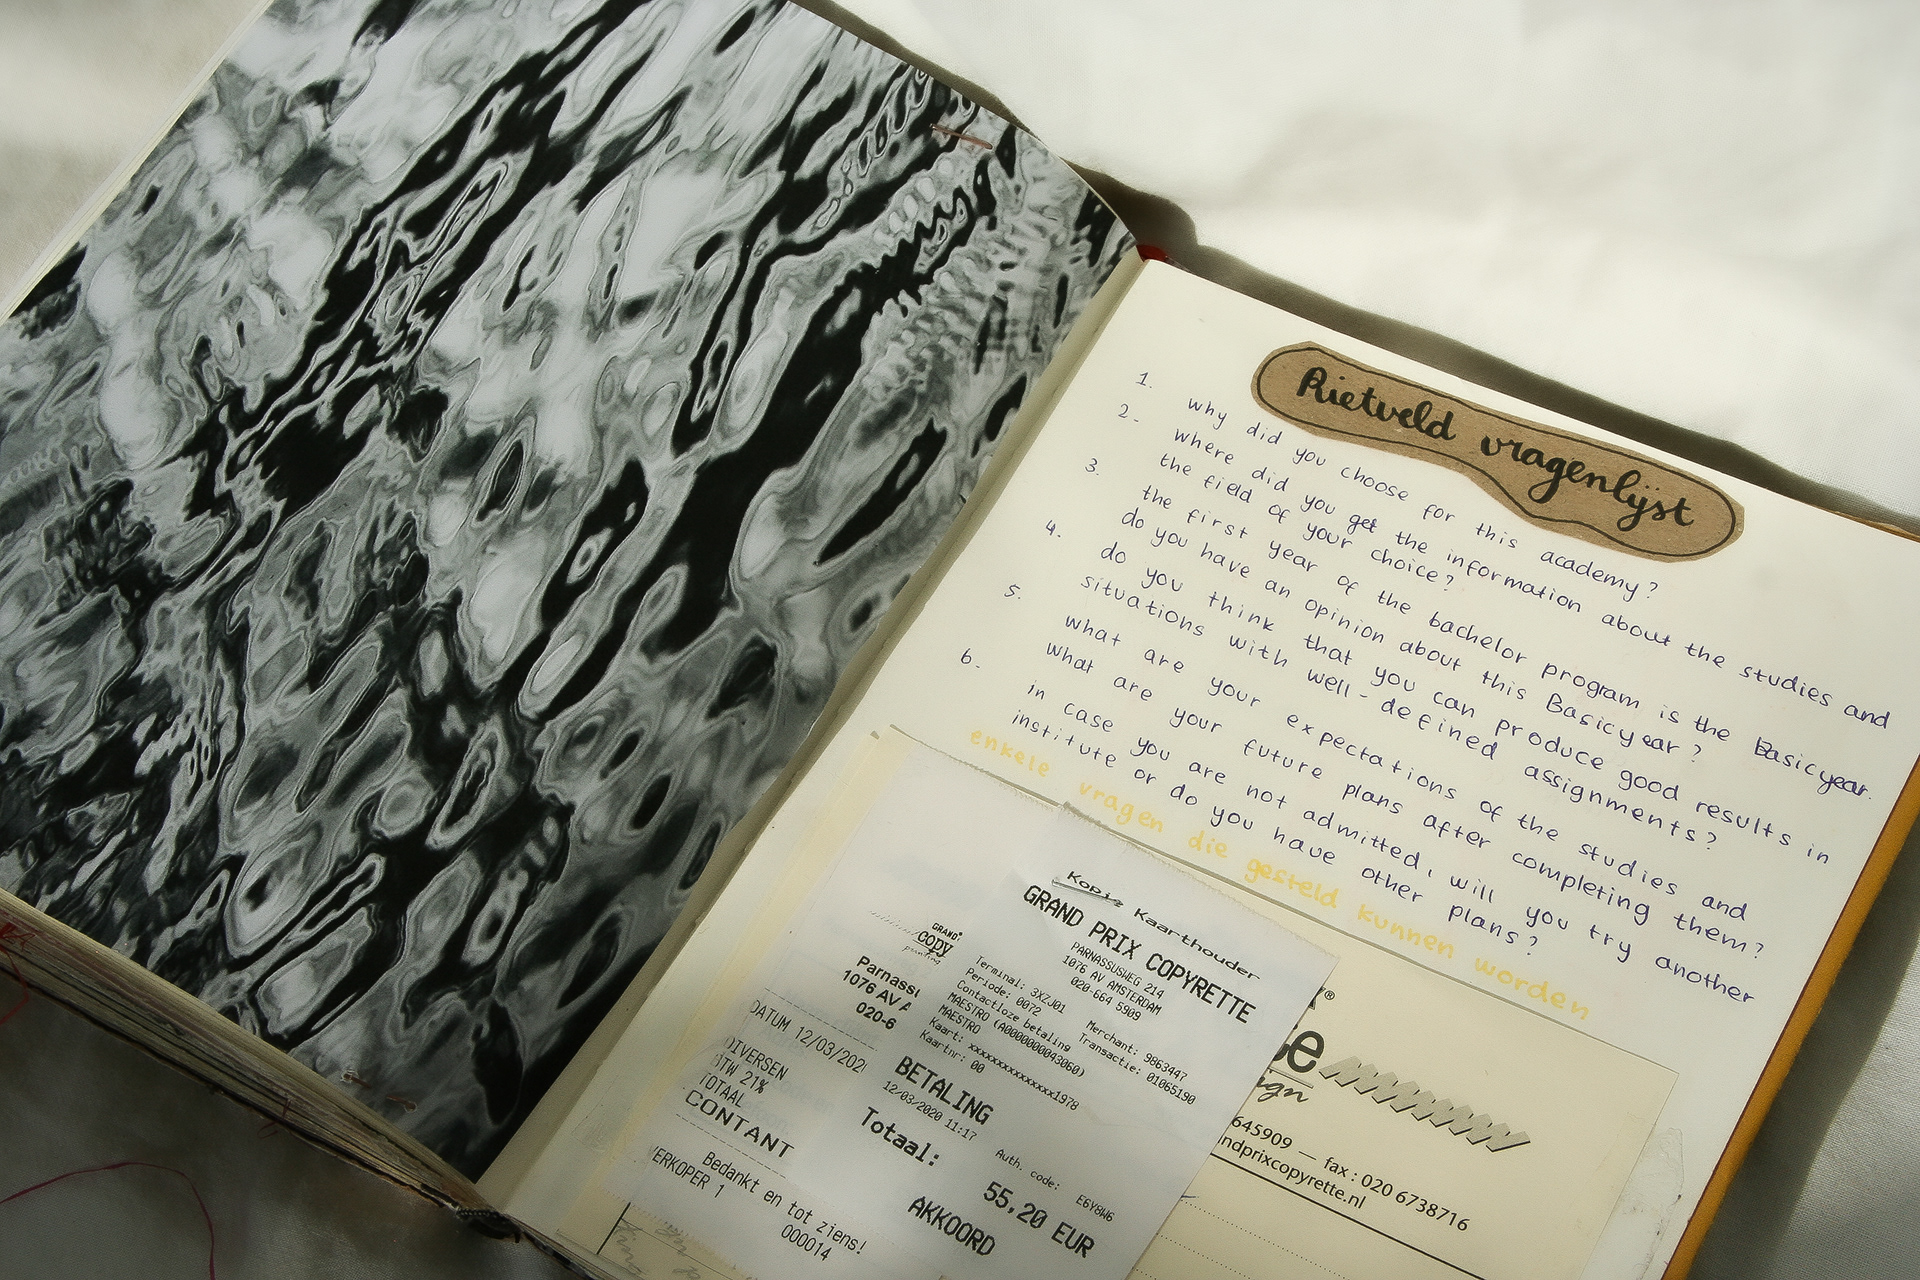 Rietveld vragenlijst
1. why did you choose for this academy?
2. where did you get the information about the studies and
the field of your choice?
3. the first year of the bachelor program is the Basicyear.
do you have an opinion about this Basicyear?
4. do you think that you can produce good results in
situations with well-defined assignments?
5. what are your expectations of the studies and
what are your future plans after completing them?
6. in case you are not admitted, will you try another
institute or do you have other plans?
enkele vragen die gesteld kunnen worden
Kopie Kaarthouder
GRAND PRIX COPYRETTE
PARNASSUSWEG 214
1076 AV AMSTERDAM
020-664 5909
Terminal: 3XZJ01 Merchant: 9863447
Periode: 0072 Transactie: 01065190
Contactloze betaling
MAESTRO (A0000000043060)
MAESTRO
Kaart: xxxxxxxxxxxxxxx1978
Kaartnr: 00
BETALING
12/03/2020 11:17
Auth. code: E6Y8W6
Totaal:
55,20 EUR
AKKOORD
GRAND
copy
printing
Parnass
1076 AV A
020-6
DATUM 12/03/202
DIVERSEN
BTW 21%
TOTAAL
CONTANT
VERKOPER 1
Bedankt en tot ziens!
000014
®
se
ign
645909 — fax : 020 6738716
ndprixcopyrette.nl